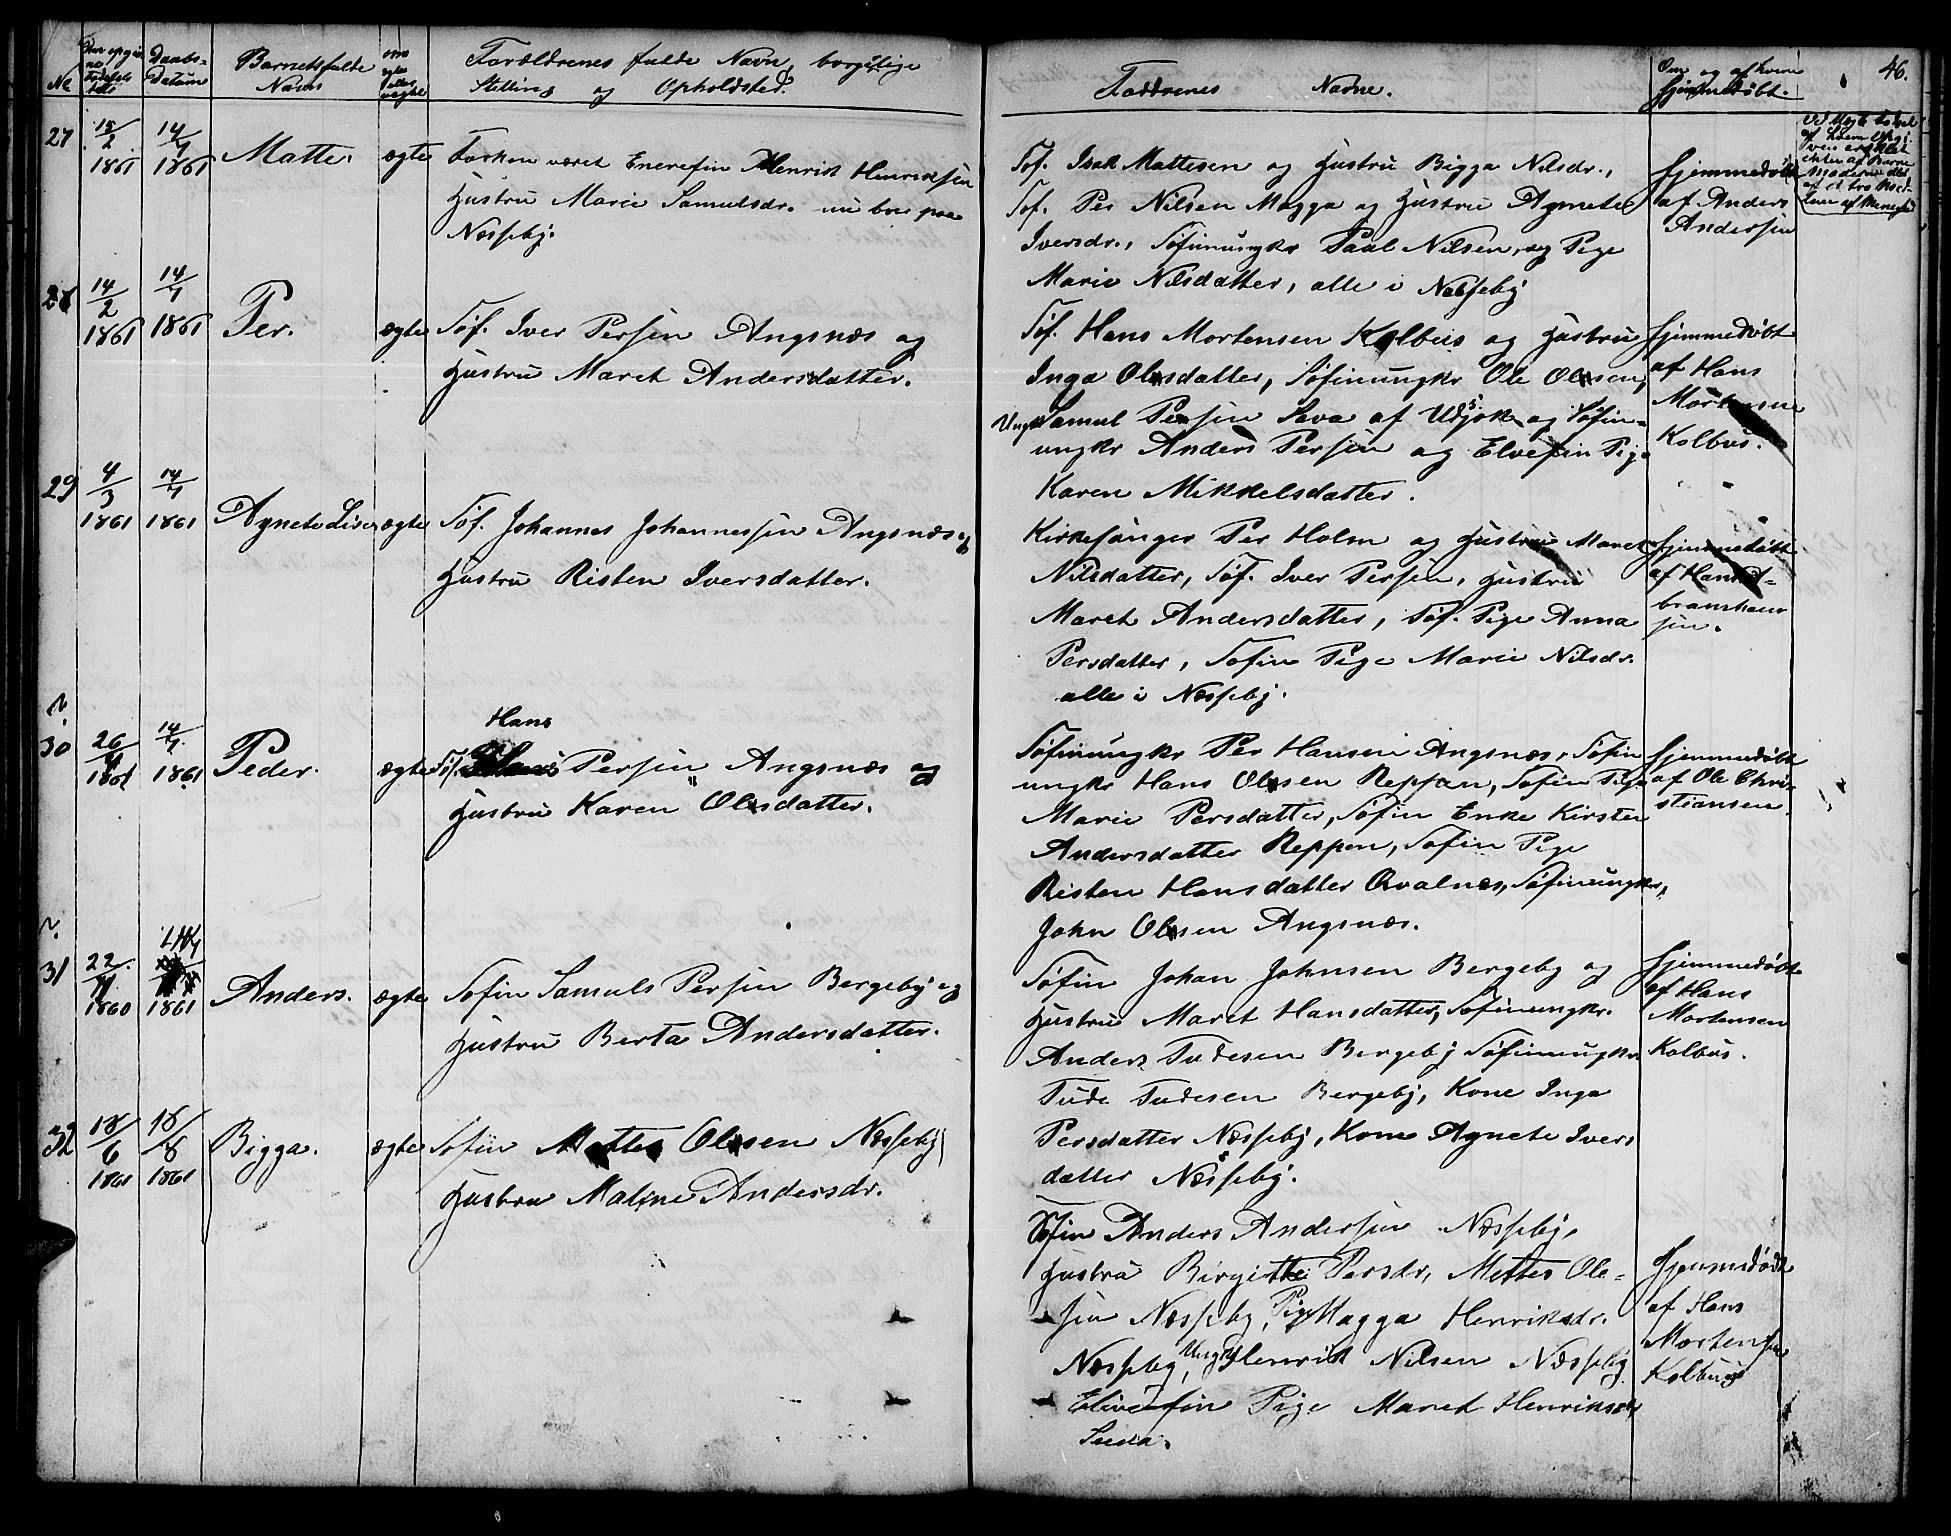 46.
No
Daabs-
Datum
Barnets fulde
Navn
om
ægte
eller
uægte
Forældrenes fulde Navn, borgerlige
Stilling og Opholdsted.
Faddrenes Navne.
Om og af hvem
hjemmedøbt.
27
15/2
1861
14/7
1861
Matte.
ægte
Forhen været Henrik Henriksen
Hustru Marie Samulsdr. nu boe paa
Næsseby.
Søf. Isak Mattesen og Hustru Bigga Nilsdr.,
Søf. Per Nilsen Magga og Hustru Agnete
Iversdr., Søfinungkr Paul Nilsen, og Pige
Marie Nilsdatter, alle i Næsseby
hjemmedøbt
af Anders
Andersen
28
14/2
1861
14/7
1861
Per.
ægte
Søf. Iver Persen Angsnæs og
Hustru Maret Andersdatter.
Søf. Hans Mortensen Kolbus og Hustru
Inga Olsdatter, Søfinungkr Ole Olsen,
Ungk Samul Persen Sava af Udsjok og Søfin-
ungkr Anders Persen og Elvefin Pige
Karen Mikkelsdatter.
hjemmedøbt
af Hans
Mortensen
Kolbus.
29
4/3
1861
14/7
1861
Agnete Lisa
ægte
Søf. Johannes Johannessen Angsnæs og
Hustru Risten Iversdatter.
Kirkesanger Per Holm og Hustru Maret
Nilsdatter, Søf. Iver Persen, Hustru
Maret Andersdatter, Søf. Pige Anna
Persdatter, Søfin Pige Marie Nilsdr.
alle i Næsseby.
hjemmedøbt
af
sen.
30
26/4
1861
14/7
1861
Peder.
ægte
Hans
Søf. Persen Angsnæs og
Hustru Karen Olsdatter.
Søfinungkr Per Hansen Angsnæs, Søfin
ungkr Hans Olsen Reppen, Søfin Pige
Marie Persdatter, Søfin Enke Kirsten
Andersdatter Reppen, Søfin Pige
Risten Hansdatter Qvalnes, Søfinungkr,
John Olsen Angsnæs.
hjemmedøbt
af Ole Chri-
stiansen
31
22/
1860
1861
Anders.
ægte
Søfin Samuls Persen Bergeby og
Hustru Berta Andersdatter.
Søfin Johan Johnsen Bergeby og
Hustru Maret Hansdatter, Søfinungkr.
Anders Tudesen Bergeby Søfinungkr.
Tude Tudesen Bergeby, Kone Inga
Persdatter Næsseby, Kone Agnete Ivers
datter Næsseby.
hjemmedøbt
af Hans
Mortensen
Kolbus.
32
18/6
1861
18/8
1861
Bigga.
ægte
Søfin Mattes Olsen Næsseby
Hustru Maline Andersdr.
Søfin Anders Andersen Næsseby,
Hustru Birgitte Persdr, Mattes Ole-
sen Næsseby, Pige Magga Henriksdr.
Næsseby, Ungk Henrik Nilsen Næsseby
Elivefin Pige Maret Henriksdr
Suda.
Hjemmedøbt
af Hans
Mortensen
Kolbus